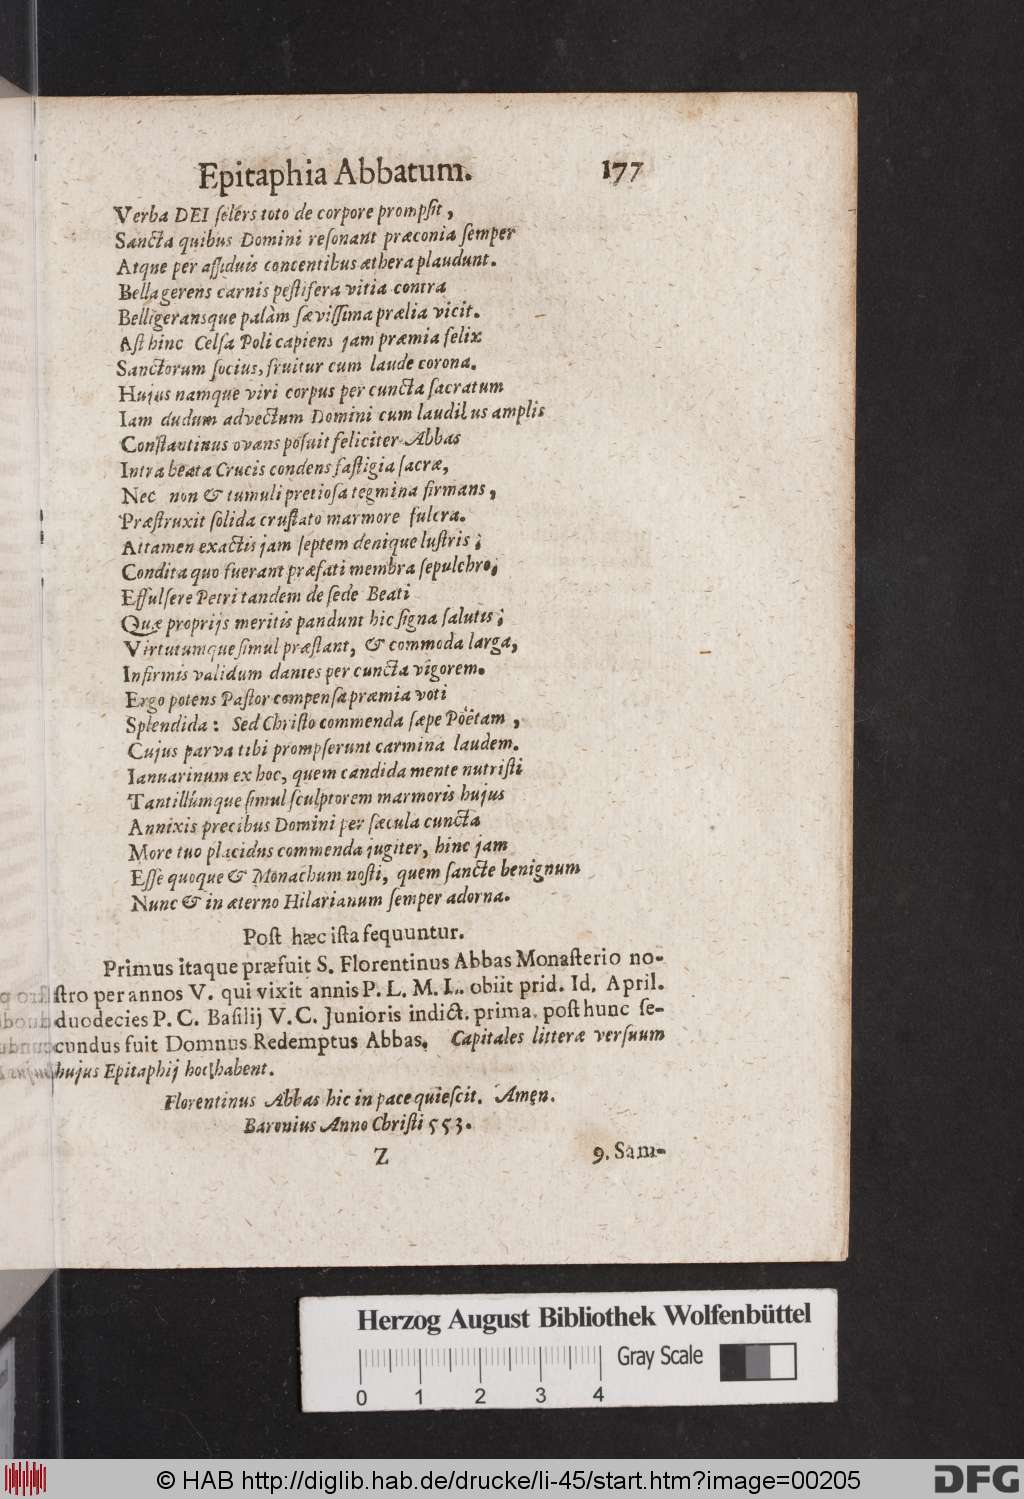 Epitaphia Abbatum. 177
Verba DEI solers toto de corpore prompsit,
Sancta quibus Domini resonant præconia semper
Atque per assiduis concentibus æthera plaudunt.
Bella gerens carnis pestifera vitia contra
Belligeransque palàm sævissima prælia vicit.
Ast hinc Celsa Poli capiens jam præmia felix
Sanctorum socius, fruitur cum laude corona.
Hujus namque viri corpus per cuncta sacratum
Iam dudum advectum Domini cum laudibus amplis
Constantinus ovans posuit feliciter Abbas
Intra beata Crucis condens fastigia sacræ,
Nec non & tumuli pretiosa tegmina firmans,
Præstruxit solida crustato marmore fulcra.
Attamen exactis jam septem denique lustris;
Condita quo fuerant præfati membra sepulchro;
Effulsere Petri tandem de sede Beati
Quæ proprijs meritis pandunt hic signa salutis;
Virtutumque simul præstant, & commoda larga,
Infirmis validum dantes per cuncta vigorem.
Ergo potens Pastor compensa præmia voti
Splendida: Sed Christo commenda sæpe Poëtam,
Cujus parva tibi prompserunt carmina laudem.
Ianuarinum ex hoc, quem candida mente nutristi
Tantillúmque simul sculptorem marmoris hujus
Annixis precibus Domini per sæcula cuncta
More tuo placidus commenda jugiter, hinc jam
Esse quoque & Monachum nosti, quem sancte benignum
Nunc & in æterno Hilarianum semper adorna.
Post hæc ista sequuntur.
Primus itaque præfuit S. Florentinus Abbas Monasterio no-
stro per annos V. qui vixit annis P. L. M. L. obiit prid. Id. April.
duodecies P. C. Basilij V. C. Junioris indict. prima. post hunc se-
cundus fuit Domnus Redemptus Abbas. Capitales litteræ versuum
hujus Epitaphij hoc habent.
Florentinus Abbas hic in pace quiescit. Amen.
Baronius Anno Christi 553.
Z 9. Sam-
Herzog August Bibliothek Wolfenbüttel
Gray Scale
0 1 2 3 4
© HAB http://diglib.hab.de/drucke/li-45/start.htm?image=00205
DFG